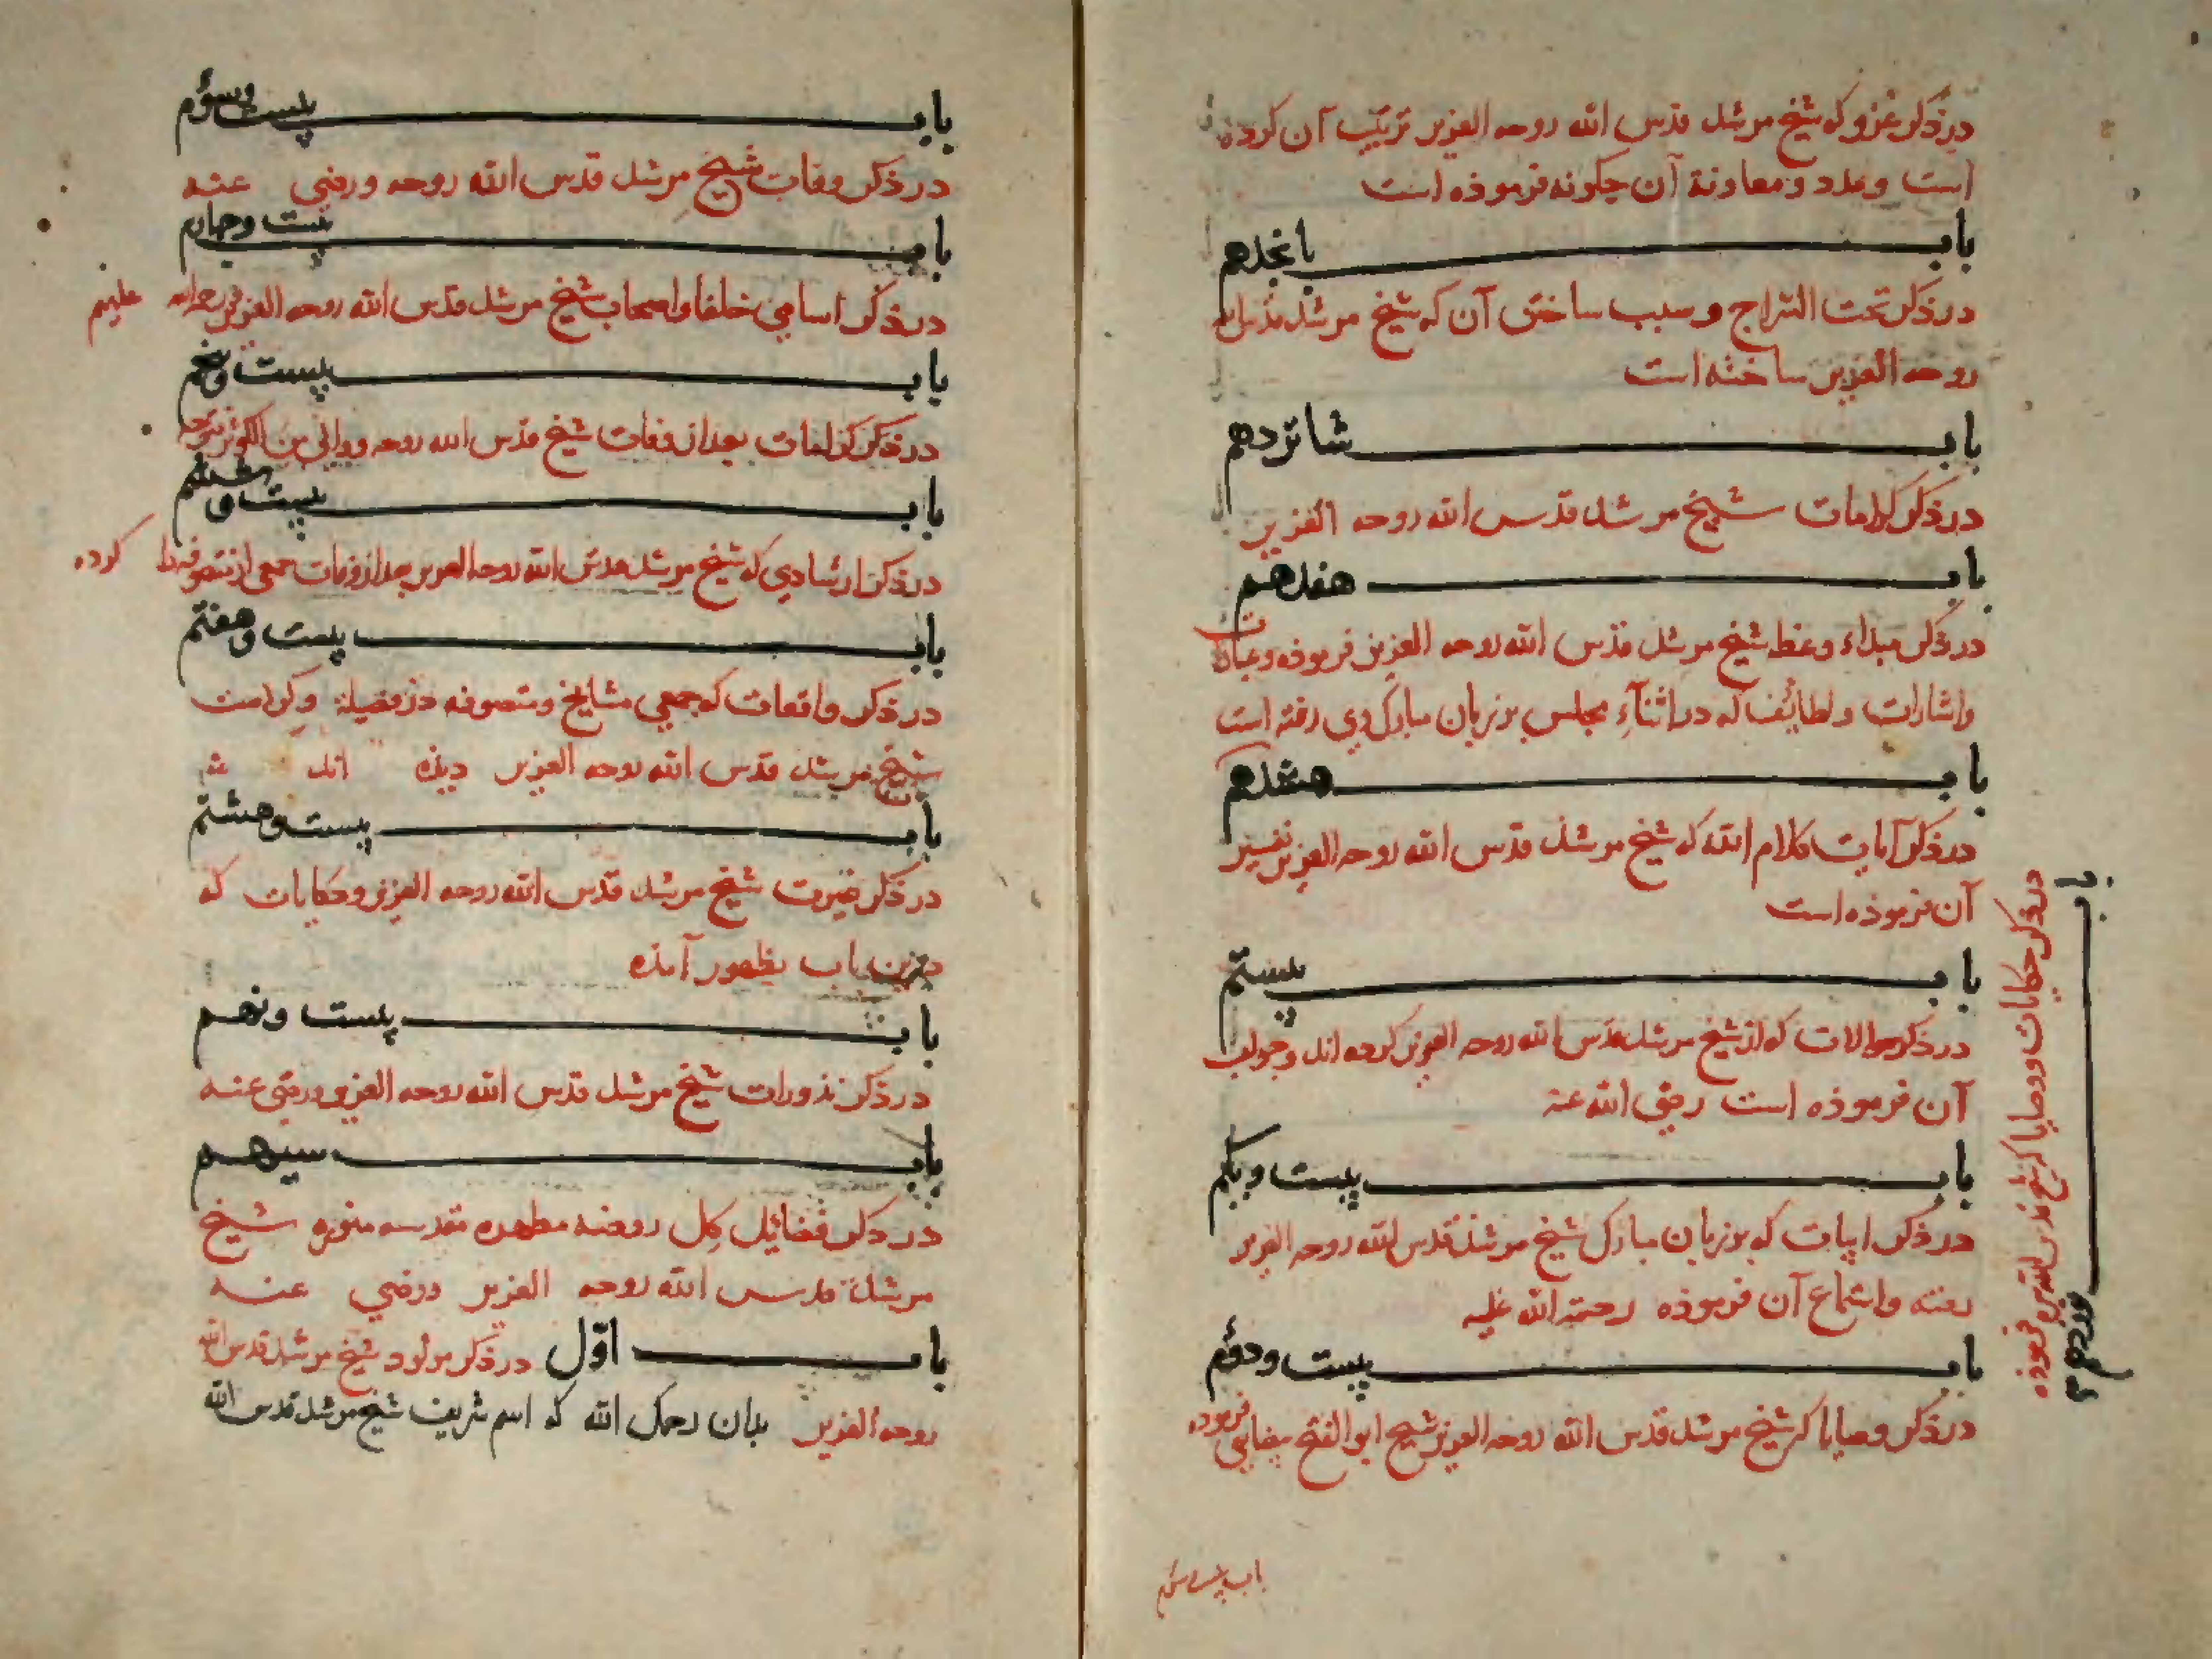 در ذکر غزو که شیخ مرشد قدس الله روحه العزیز ترتیب آن کرده
است و عدد و معاونة آن چکونه فرموذه است
باب بانجدهم
در ذکر تحت السراج و سبب ساختن آن که شیخ مرشد قدس الله
روحه العزیز ساخته است
باب شانزدهم
در ذکر کرامات شیخ مرشد قدس الله روحه العزیز
باب هفدهم
در ذکر مبداء وعظ شیخ مرشد قدس الله روحه العزیز فرموذه و عبارات
و اشارات و لطائف که در اثناء مجلس بر زبان مبارک وی رفته است
باب هتجدهم
در ذکر آیات کلام الله که شیخ مرشد قدس الله روحه العزیز تفسیر
آن فرموذه است
باب نوزدهم
در ذکر حکایات و وصایا که شیخ قدس الله سره فرموذه
باب بیستم
در ذکر سوالات که از شیخ مرشد قدس الله روحه العزیز کرده اند و جواب
آن فرموذه است رضی الله عنه
باب بیست و یکم
در ذکر ابیات که بر زبان مبارک شیخ مرشد قدس الله روحه العزیز
رفته و استماع آن فرموذه رحمة الله علیه
باب بیست و دوم
در ذکر وصایا که شیخ مرشد قدس الله روحه العزیز شیخ ابو الفتح فرموده
باب بیست و سوم
باب بیست و سؤم
در ذکر وفات شیخ مرشد قدس الله روحه و رضی عنه
باب بیست و چهارم
در ذکر اسامی خلفا و اصحاب شیخ مرشد قدس الله روحه العزیز علیهم
باب بیست و پنجم
در ذکر کرامات بعد از وفات شیخ قدس الله روحه
باب بیست و ششم
در ذکر ارشادی که شیخ مرشد قدس الله روحه العزیز بعد از وفات جمعی از متصوفه را کرده
باب بیست و هفتم
در ذکر واقعات که جمعی مشایخ و متصوفه در فضیلة و کرامت
شیخ مرشد قدس الله روحه العزیز دیذه اند
باب بیست و هشتم
در ذکر غیرت شیخ مرشد قدس الله روحه العزیز و حکایات که
درین باب بظهور آمذه
باب بیست و نهم
در ذکر نذورات شیخ مرشد قدس الله روحه العزیز و رضی عنه
باب سیهم
در ذکر فضائل کل روضه مطهره مقدسه منوره شیخ
مرشد قدس الله روحه العزیز ورضی عنه
باب اوّل در ذکر مولود شیخ مرشد قدس الله
روحه العزیز بدان رحمک الله که اسم شریف شیخ مرشد قدس الله